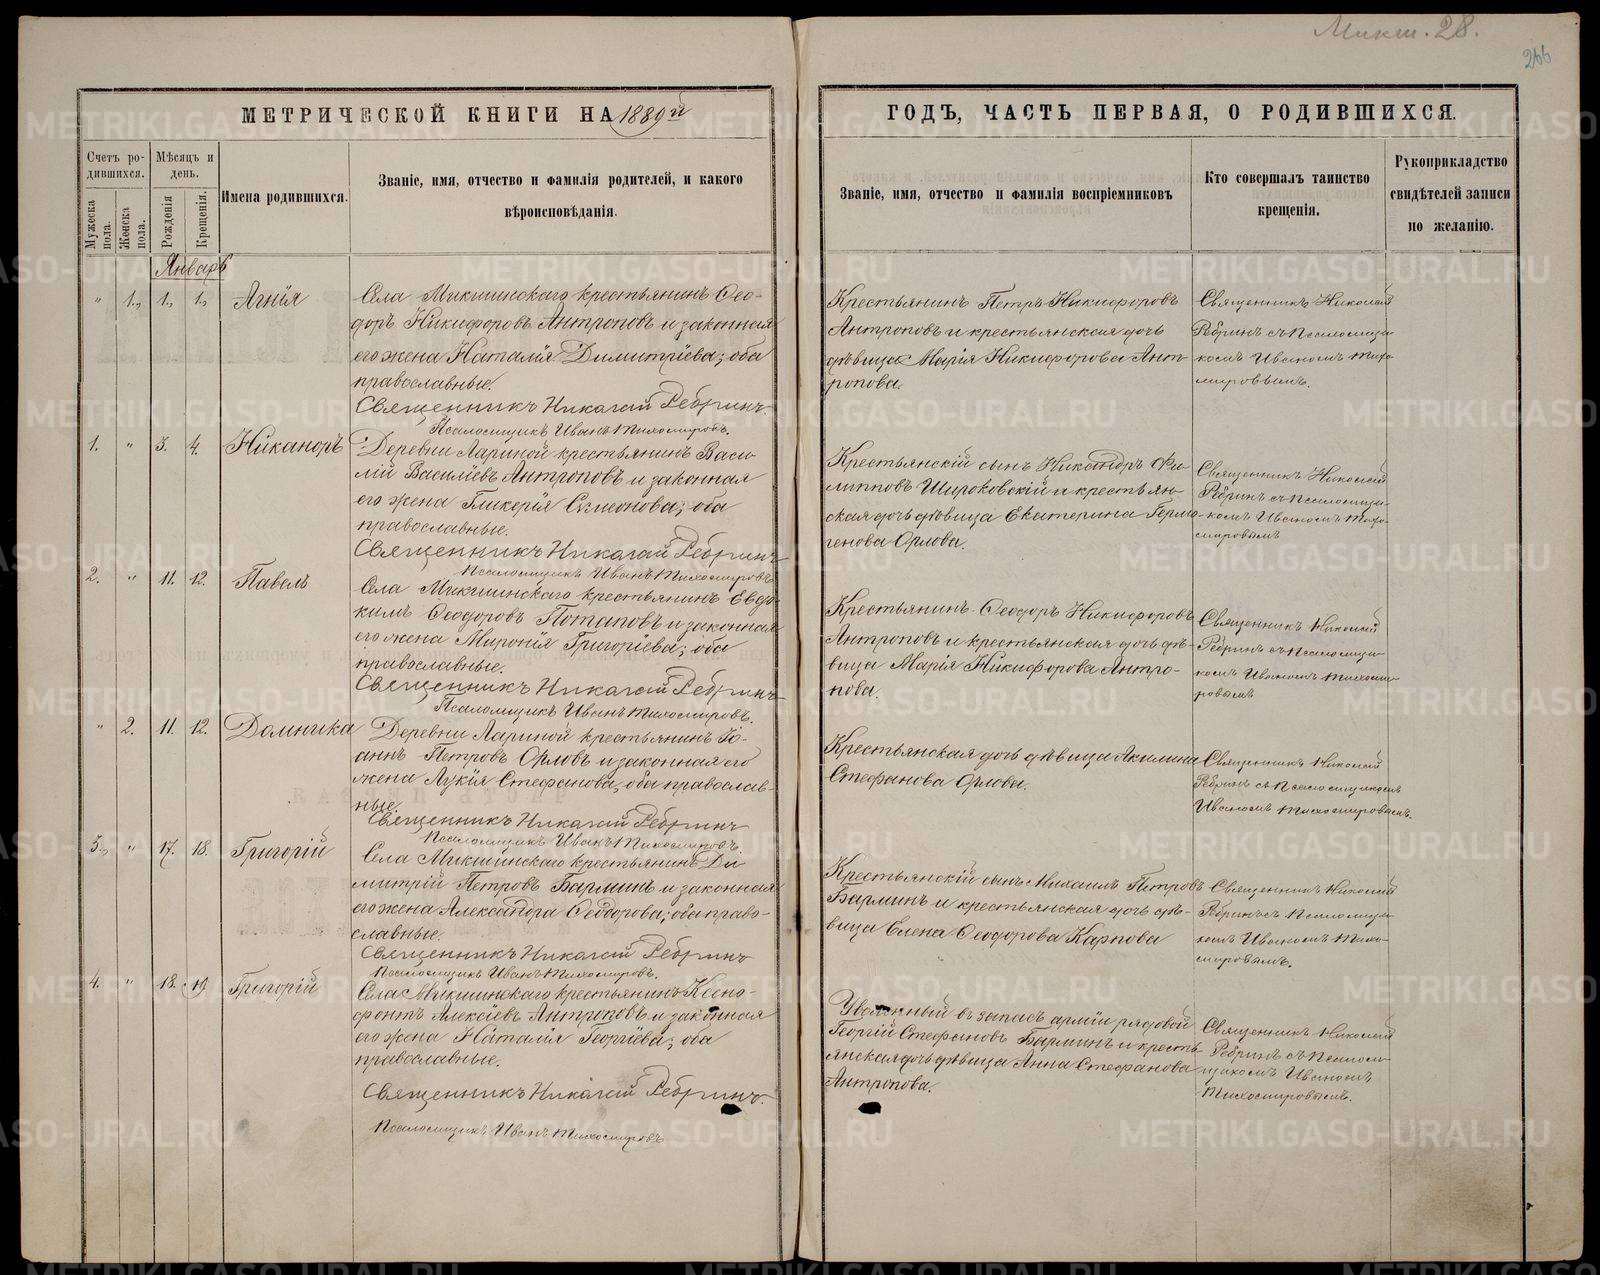 Микш. 28.
266
МЕТРИЧЕСКОЙ КНИГИ НА 1889й
ГОДЪ, ЧАСТЬ ПЕРВАЯ, О РОДИВШИХСЯ.
Счетъ ро-
дившихся.
Мѣсяцъ и
день.
Мужеска
пола.
Женска
пола.
Рожденія
Крещенія.
Имена родившихся.
Званіе, имя, отчество и фамилія родителей, и какого
вѣроисповѣданія.
Званіе, имя, отчество и фамилія воспріемниковъ
Кто совершалъ таинство
крещенія.
Рукоприкладство
свидѣтелей записи
по желанію.
Январь
" 1., 1., 1., Агнія
Села Микшинскаго крестьянинъ Ѳео-
доръ Никифоровъ Антроповъ и законная
его жена Наталія Димитріева; оба
православные.
Священникъ Николай Ребринъ.
Псаломщикъ Иванъ Тихомировъ.
Крестьянинъ Петръ Никифоровъ
Антроповъ и крестьянская дочь
дѣвица Марія Никифорова Ант-
ропова.
Священникъ Николай
Ребринъ съ псаломщи-
комъ Иваномъ Тихо-
мировымъ.
1. " 3. 4. Никаноръ
Деревни Лариной крестьянинъ Васи-
лій Василіевъ Антроповъ и законная
его жена Гликерія Симеонова; оба
православные.
Священникъ Николай Ребринъ
Псаломщикъ Иванъ Тихомировъ
Крестьянскій сынъ Никандръ Фи-
липповъ Широковскій и крестьян-
ская дочь дѣвица Екатерина Гермо-
генова Орлова.
Священникъ Николай
Ребринъ съ псаломщи-
комъ Иваномъ Тихо-
мировымъ
2. " 11. 12. Павелъ
Села Микшинскаго крестьянинъ Евдо-
кимъ Ѳеодоровъ Потаповъ и законная
его жена Миронія Григоріева; оба
православные.
Священникъ Николай Ребринъ
Псаломщикъ Иванъ Тихомировъ.
Крестьянинъ Ѳеодоръ Никифоровъ
Антроповъ и крестьянская дочь дѣ-
вица Марія Никифорова Антро-
пова.
Священникъ Николай
Ребринъ съ псаломщи-
комъ Иваномъ Тихоми-
ровымъ
" 2. 11. 12. Домника
Деревни Лариной крестьянинъ Іо-
аннъ Петровъ Орловъ и законная его
жена Лукія Стефанова; оба православ-
ные.
Священникъ Николай Ребринъ
Псаломщикъ Иванъ Тихомировъ.
Крестьянская дочь дѣвица Акилина
Стефанова Орлова.
Священникъ Николай
Ребринъ съ псаломщикомъ
Иваномъ Тихомировымъ.
3., " 17. 18. Григорій
Села Микшинскаго крестьянинъ Ди-
митрій Петровъ Барминъ и законная
его жена Александра Ѳеодорова; оба право-
славные.
Священникъ Николай Ребринъ
Псаломщикъ Иванъ Тихомировъ.
Крестьянскій сынъ Михаилъ Петровъ
Барминъ и крестьянская дочь дѣ-
вица Елена Ѳеодорова Карпова
Священникъ Николай
Ребринъ съ псаломщи-
комъ Иваномъ Тихо-
мировымъ.
4. " 18. 19. Григорій
Села Микшинскаго крестьянинъ Ксено-
фонтъ Алексіевъ Антроповъ и законная
его жена Наталія Георгіева; оба
православные.
Священникъ Николай Ребринъ.
Псаломщикъ Иванъ Тихомировъ
Уволенный въ запасъ арміи рядовой
Георгій Стефановъ Барминъ и кресть-
янская дочь дѣвица Анна Стефанова
Антропова.
Священникъ Николай
Ребринъ съ псалом-
щикомъ Иваномъ
Тихомировымъ.
METRIKI.GASO-URAL.RU